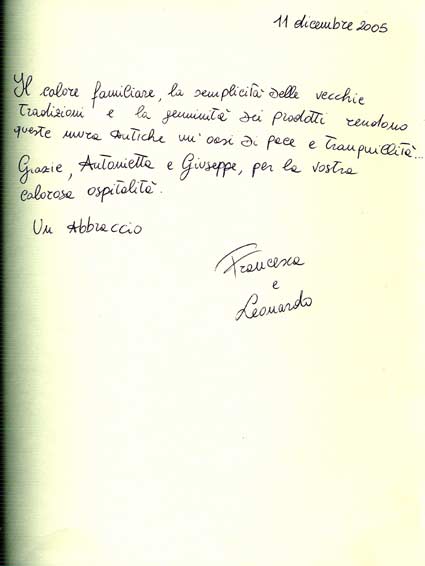 11 dicembre 2005
Il calore familiare, la semplicità delle vecchie
tradizioni e la genuinità dei prodotti rendono
queste mura antiche un'oasi di pace e tranquillità...
Grazie, Antonietta e Giuseppe, per la vostra
calorosa ospitalità.
Un Abbraccio
Francesca
e
Leonardo